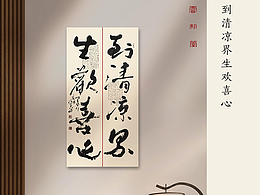 到清凉界生欢喜心
到清凉界
生歡喜心